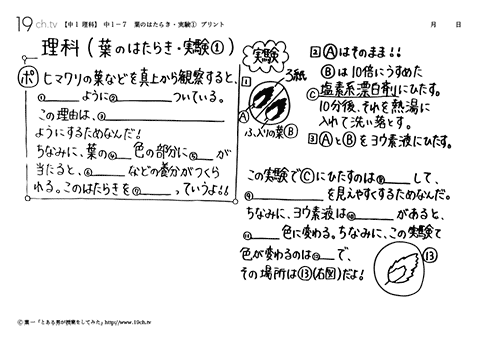 19ch.tv 【中1 理科】 中1-7 葉のはたらき・実験① プリント 月 日
理科(葉のはたらき・実験①)
ポ ヒマワリの葉などを真上から観察すると、
①____ように②____ついている。
この理由は、③____
ようにするためなんだ!
ちなみに、葉の④__色の部分に⑤__が
当たると、⑥____などの養分がつくら
れる。このはたらきを⑦____っていうよ!!
実験
1 ろ紙
A
ふ入りの葉 B
2 Ⓐはそのまま!!
Ⓑは10倍にうすめた
Ⓒ塩素系漂白剤にひたす。
10分後、それを熱湯に
入れて洗い落とす。
3 ⒶとⒷをヨウ素液にひたす。
この実験でⒸにひたすのは⑧____して、
⑨____を見えやすくするためなんだ。
ちなみに、ヨウ素液は⑩____があると、
⑪____色に変わる。ちなみに、この実験で
色が変わるのは⑫__で、
その場所は⑬(右図)だよ!
⑬
© 葉一「とある男が授業をしてみた」http://www.19ch.tv